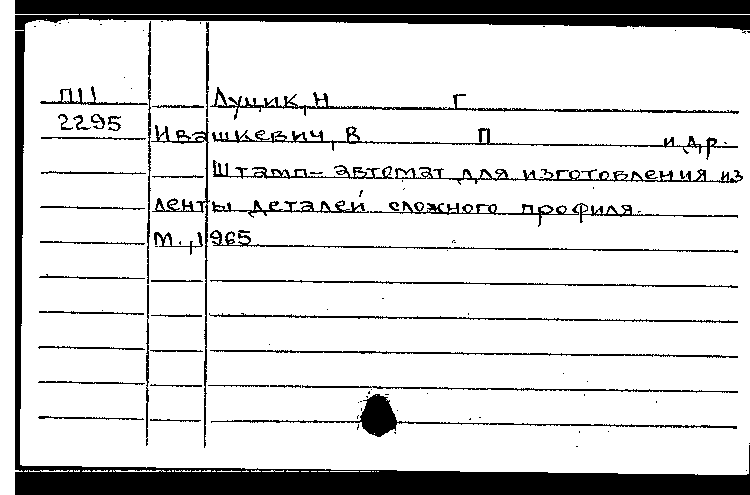 П11 Луцик, Н Г
2295 Ивашкевич, В П и др.
Штамп-автомат для изготовления из
ленты деталей сложного профиля.
М., 1965